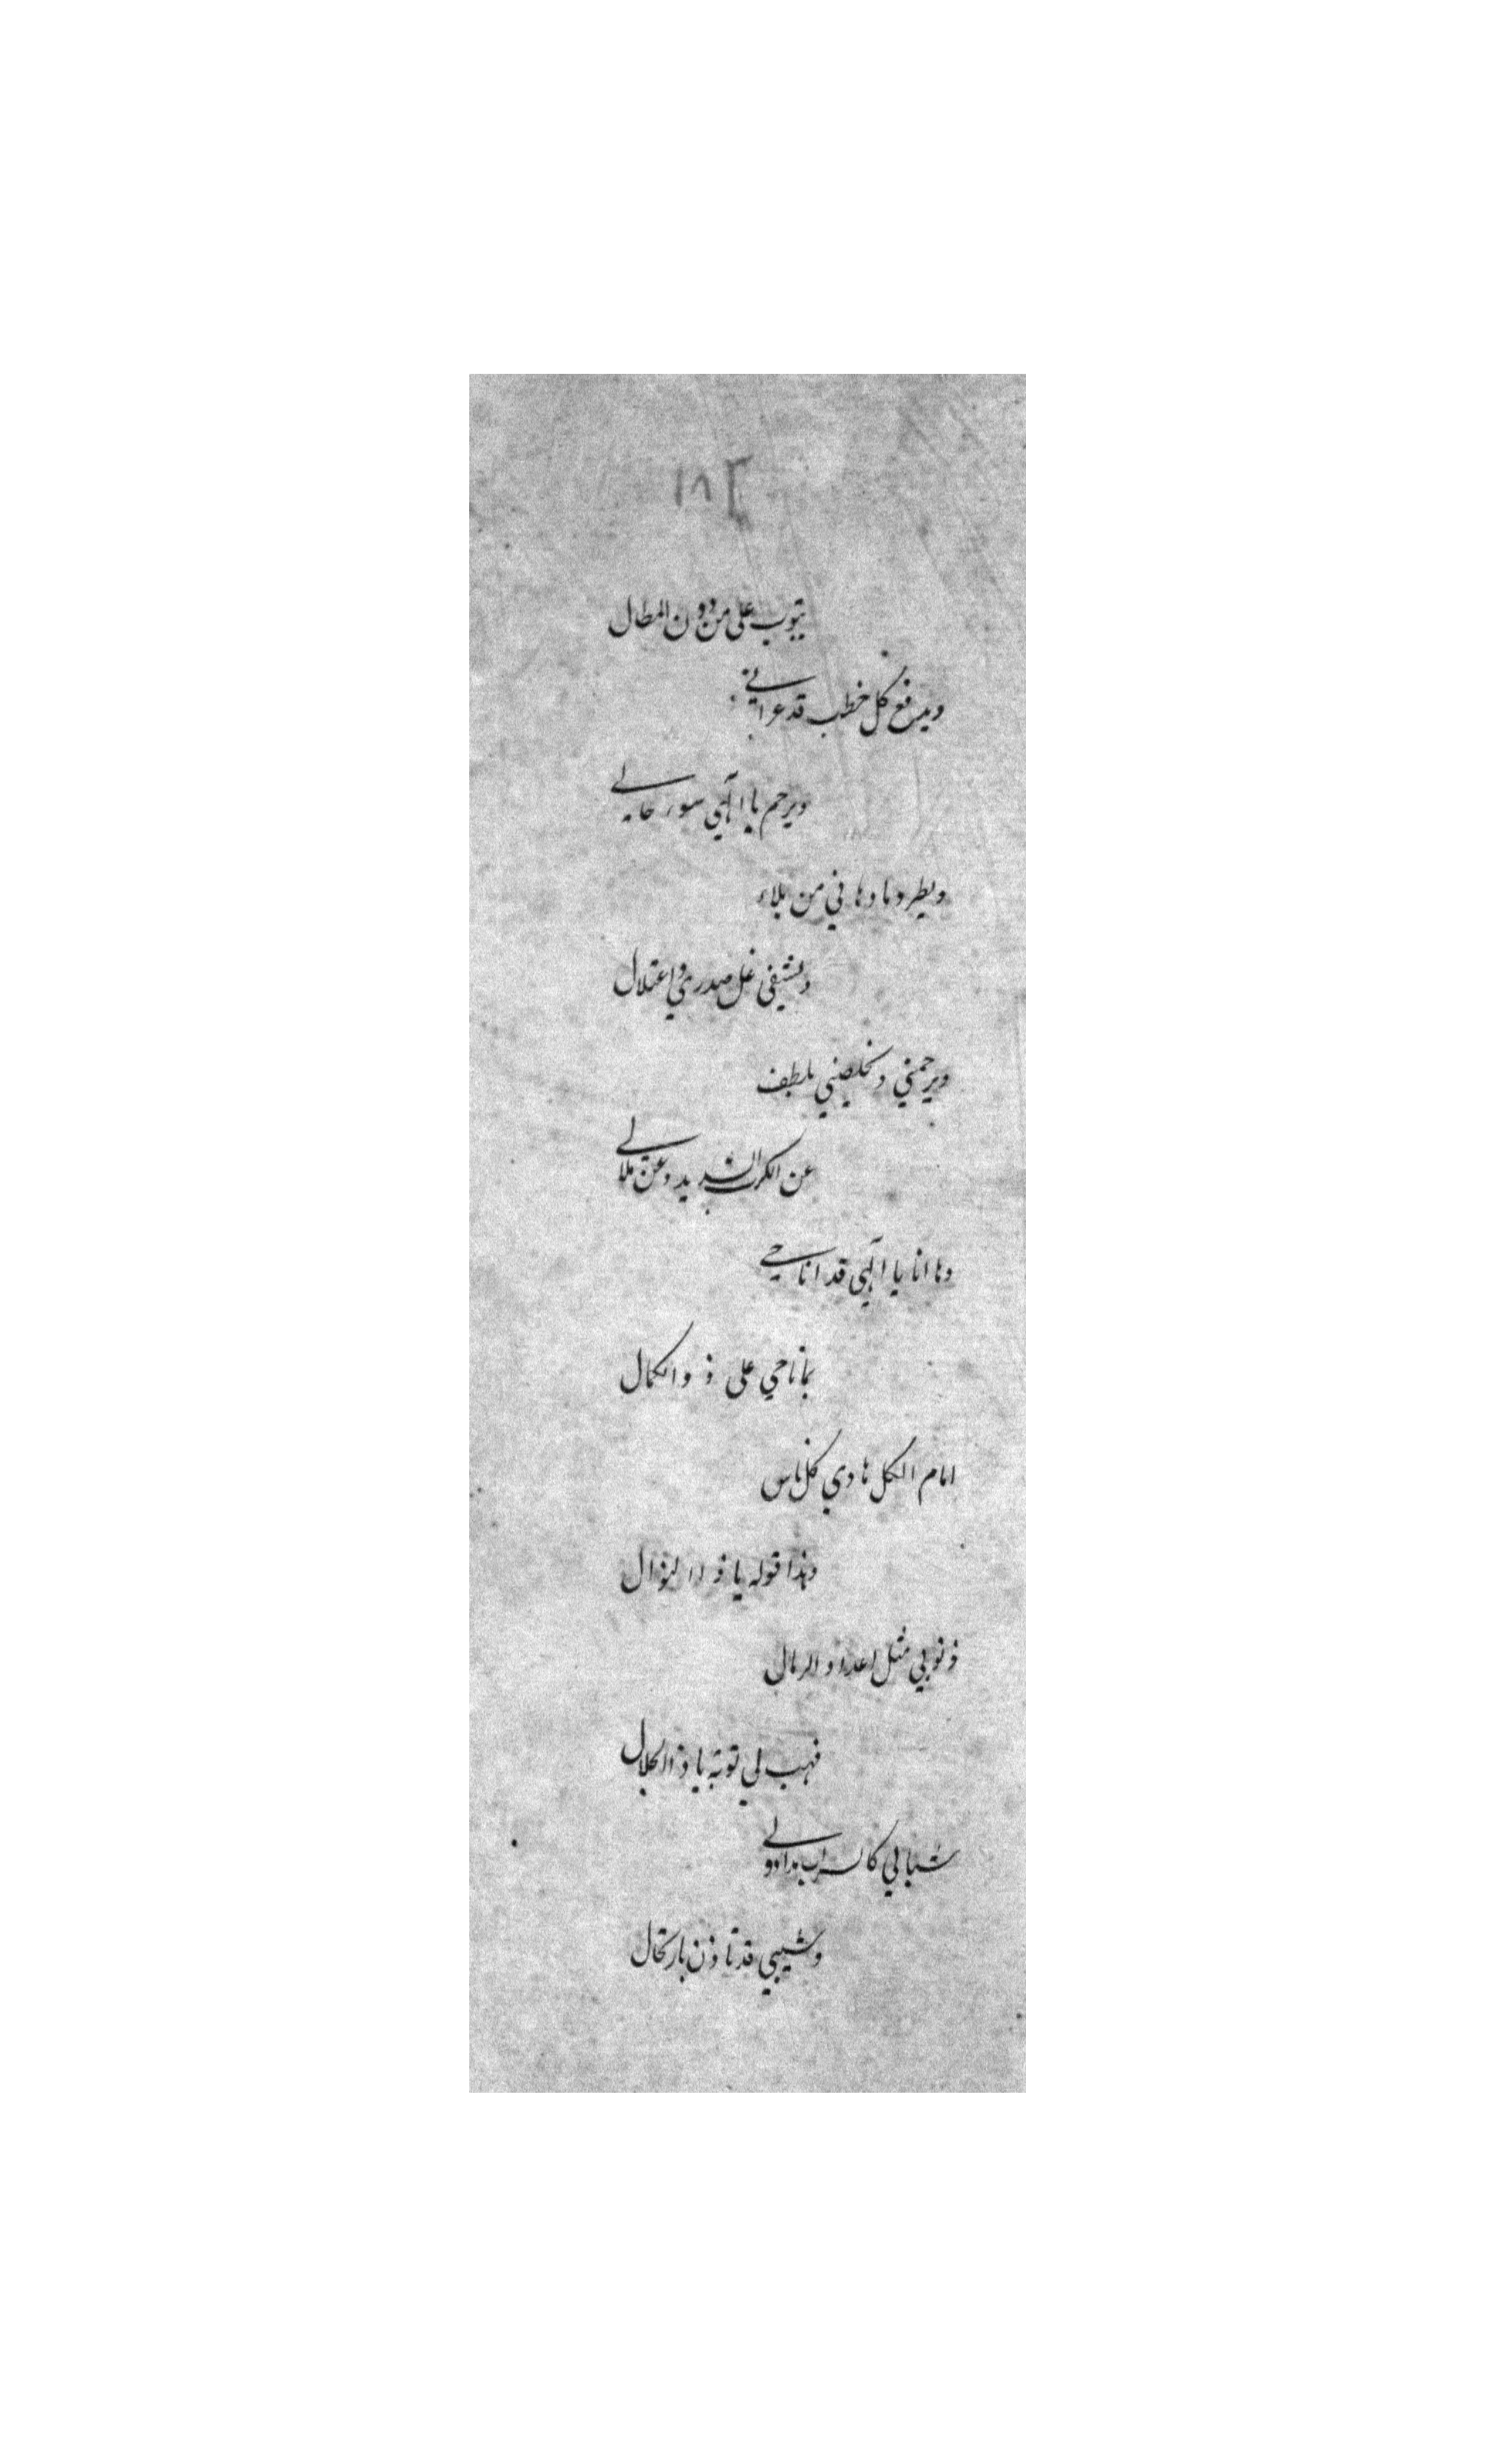 ١٨٢
يتوب علي من دون المطال
ويدفع كل خطب قد عراني
ويرحم يا الهي سوء حالي
ويطرد ما دهاني من بلاء
ويشفي غل صدري واعتلال
ويرحمني ويخلصني بلطف
عن الكرب الشديد وعن ملالي
وها انا يا الهي قد اناجي
بما ناجي علي ذو الكمال
امام الكل هادي كل ناس
وهذا قوله يا ذا النوال
ذنوبي مثل اعداد الرمال
فهب لي توبة يا ذا الجلال
شبابي كالسراب بدا وولي
وشيبي قد تاذن بارتحال